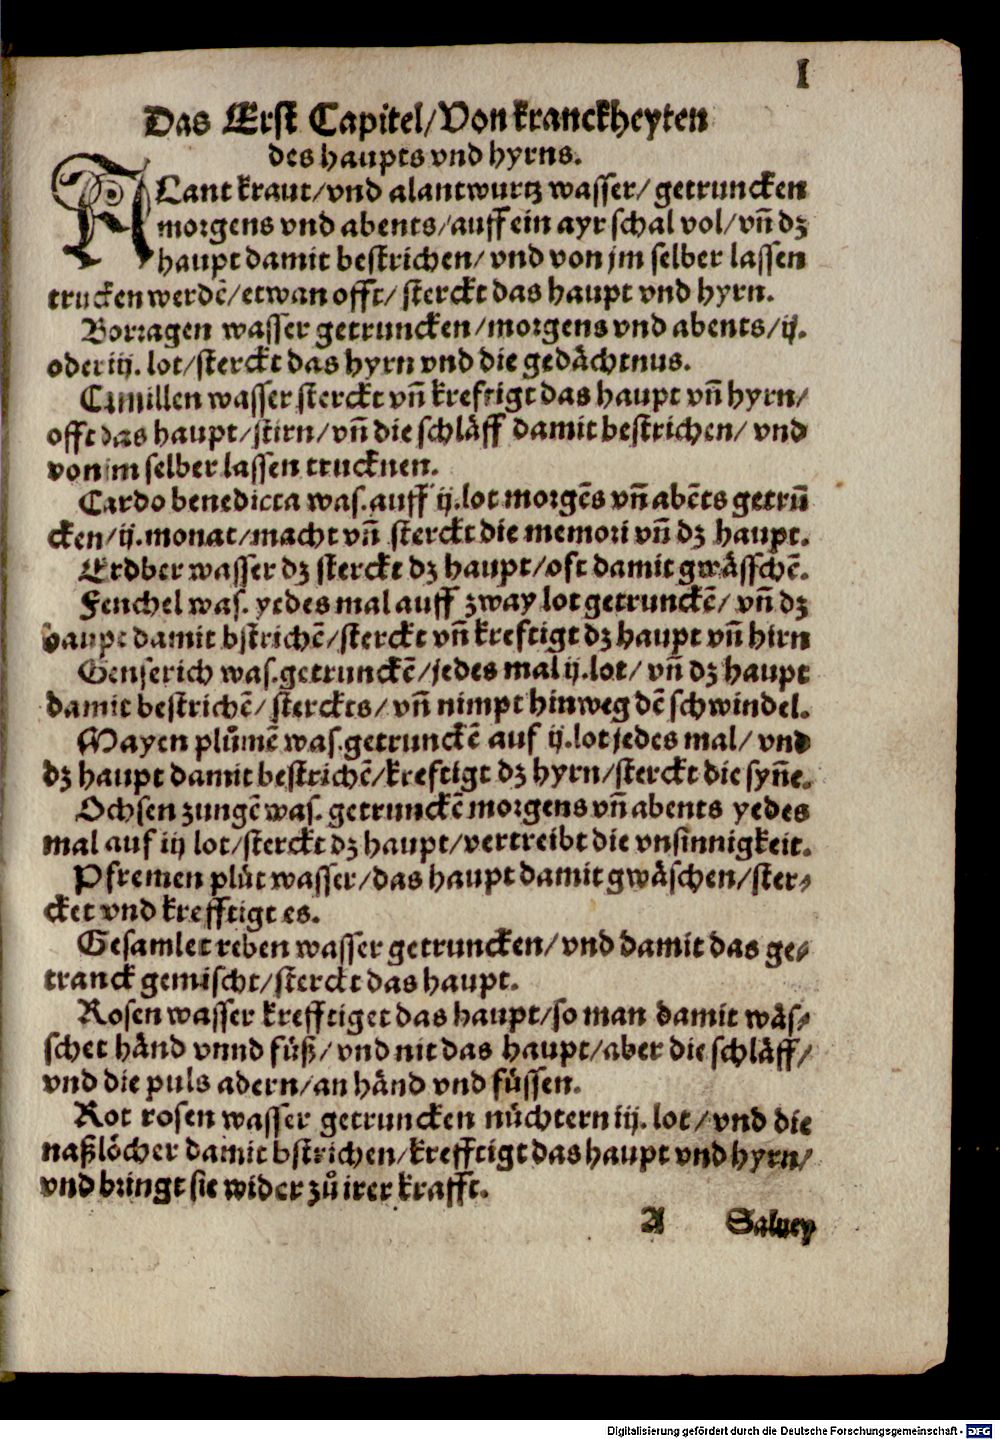 I
Das Erst Capitel/Von kranckheyten
des haupts vnd hyrns.
ALant kraut/vnd alantwurtz wasser/getruncken
morgens vnd abents/auff ein ayr schal vol/vn̄ dz
haupt damit bestrichen/vnd von jm selber lassen
trucken werdē/etwan offt/sterckt das haupt vnd hyrn.
Borragen wasser getruncken/morgens vnd abents/ij.
oder iij. lot/sterckt das hyrn vnd die gedächtnus.
Camillen wasser sterckt vn̄ kreftigt das haupt vn̄ hyrn/
offt das haupt/stirn/vn̄ die schläff damit bestrichen/vnd
von im selber lassen trucknen.
Cardo benedicta was. auff ij. lot morgēs vn̄ abēts getrū
cken/ij. monat/macht vn̄ sterckt die memori vn̄ dz haupt.
Erdber wasser dz sterckt dz haupt/oft damit gwässchē.
Fenchel was. yedes mal auff zway lot getrunckē/vn̄ dz
haupt damit bstrichē/sterckt vn̄ kreftigt dz haupt vn̄ hirn
Genserich was. getrunckē/jedes mal ij. lot/vn̄ dz haupt
damit bestrichē/sterckts/vn̄ nimpt hinweg dē schwindel.
Mayen plůmē was. getrunckē auf ij. lot jedes mal/vnd
dz haupt damit bestrichē/kreftigt dz hyrn/sterckt die syn̄e.
Ochsen zungē was. getrunckē morgens vn̄ abents yedes
mal auf iij lot/sterckt dz haupt/vertreibt die vnsinnigkeit.
Pfremen plůt wasser/das haupt damit gwäschen/ster⸗
cket vnd krefftigt es.
Gesamlet reben wasser getruncken/vnd damit das ge⸗
tranck gemischt/sterckt das haupt.
Rosen wasser krefftiget das haupt/so man damit wäs⸗
schet händ vnnd füß/vnd nit das haupt/aber die schläff/
vnd die puls adern/an händ vnd füssen.
Rot rosen wasser getruncken nüchtern iij. lot/vnd die
naßlöcher damit bstrichen/krefftigt das haupt vnd hyrn/
vnd bringt sie wider zů irer krafft.
A Saluey
Digitalisierung gefördert durch die Deutsche Forschungsgemeinschaft - DFG